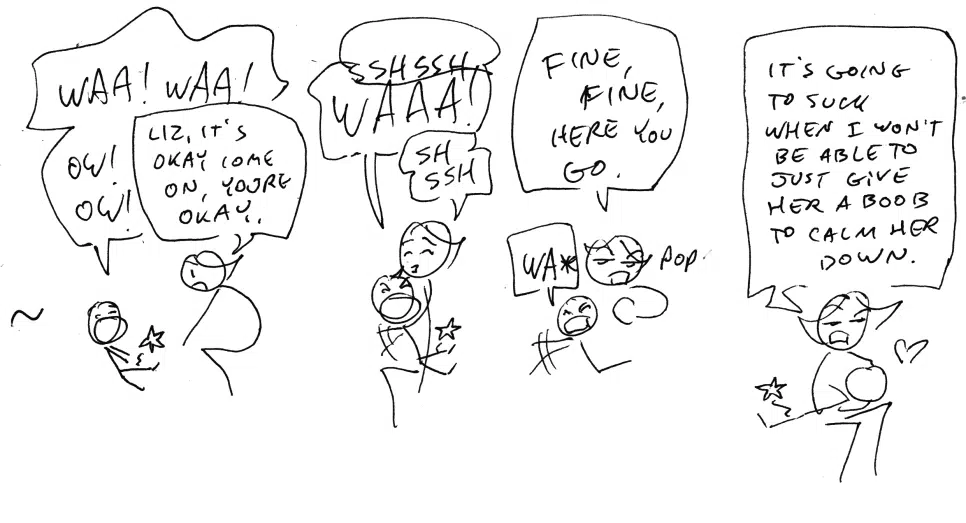 WAA! WAA!
OW!
OW!
LIZ, IT'S
OKAY COME
ON, YOU'RE
OKAY..
SSHSSH,
WAAA!
SH
SSH
FINE,
FINE,
HERE YOU
GO.
WA*
POP.
IT'S GOING
TO SUCK
WHEN I WON'T
BE ABLE TO
JUST GIVE
HER A BOOB
TO CALM HER
DOWN.